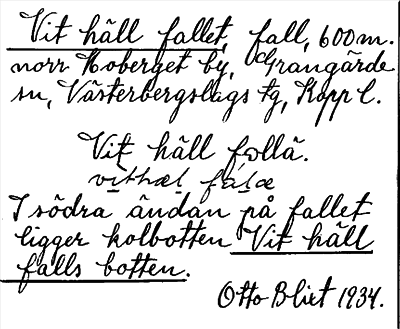 Vit häll fallet, fall, 600 m.
norr Hoberget by, Grangärde
sn, Västerbergslags tg, Kopp l.
Vit häll follä.
vithæl falæ
I södra ändan på fallet
ligger kolbotten Vit häll
falls botten.
Otto Blixt 1934.